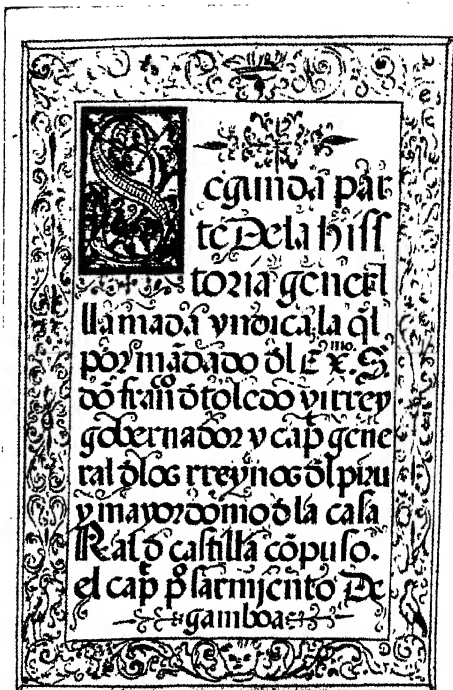 Segunda par
te Dela hiſſ
toria geñel
llamada yndica, la q̃l
por mãdado ðl Ex.mo S.
dõ fran.co ð toledo virrey
gobernador y cap̃ gene
ral ðlos rreynos ðl piru
y mayordomo ð la caſa
Real ð caſtilla cõpuſo.
el cap̃ p.o ſarmiento De
gamboa